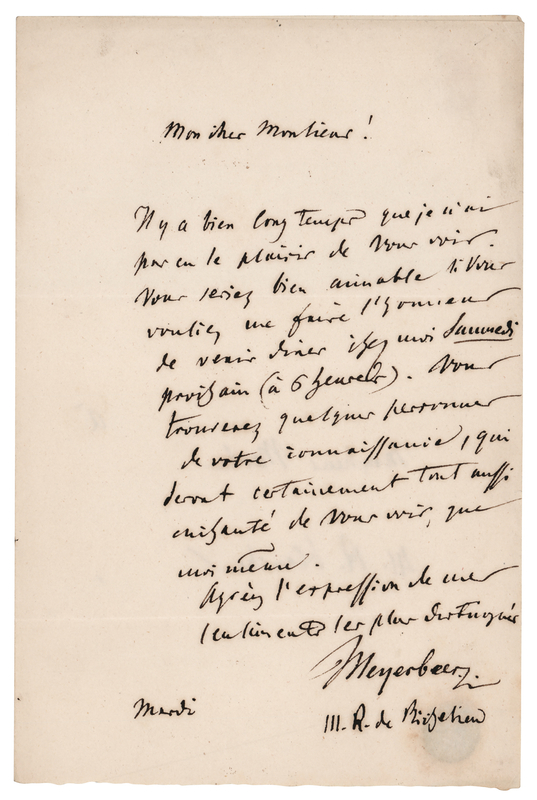 Mon cher Monsieur!
Il y a bien long temps que je n'ai
pas eu le plaisir de vous voir.
Vous seriez bien aimable si vous
vouliez me faire l'honneur
de venir diner chez moi Samedi
prochain (à 6 heures). Vous
trouverez quelques personnes
de votre connaissance, qui
seront certainement tout aussi
enchanté de vous voir, que
moi même.
Agréez l'expression de mes
sentiments les plus distingués
Meyerbeer.
Mardi
111. R. de Richelieu